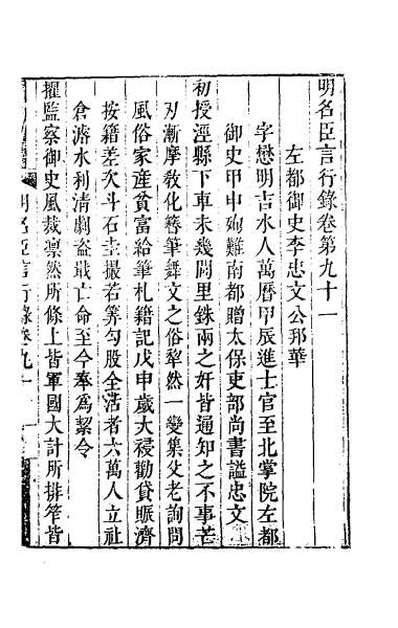 明名臣言行錄卷第九十一
左都御史李忠文公邦華
字懋明吉水人萬曆甲辰進士官至北掌院左都
御史甲申殉難南都贈太保吏部尚書諡忠文
初授涇縣下車未幾閭里銖兩之奸皆通知之不事芒
刃漸摩敎化簪筆舞文之俗犁然一變集父老詢問
風俗家産貧富給筆札籍記戊申歲大祲勸貸賑濟
按籍差次斗石圭撮若筭勾股全活者六萬人立社
倉濬水利清劇盜戢亡命至今奉爲絜令
擢監察御史風裁凜然所條上皆軍國大計所排笮皆
明名臣言行錄卷九十一